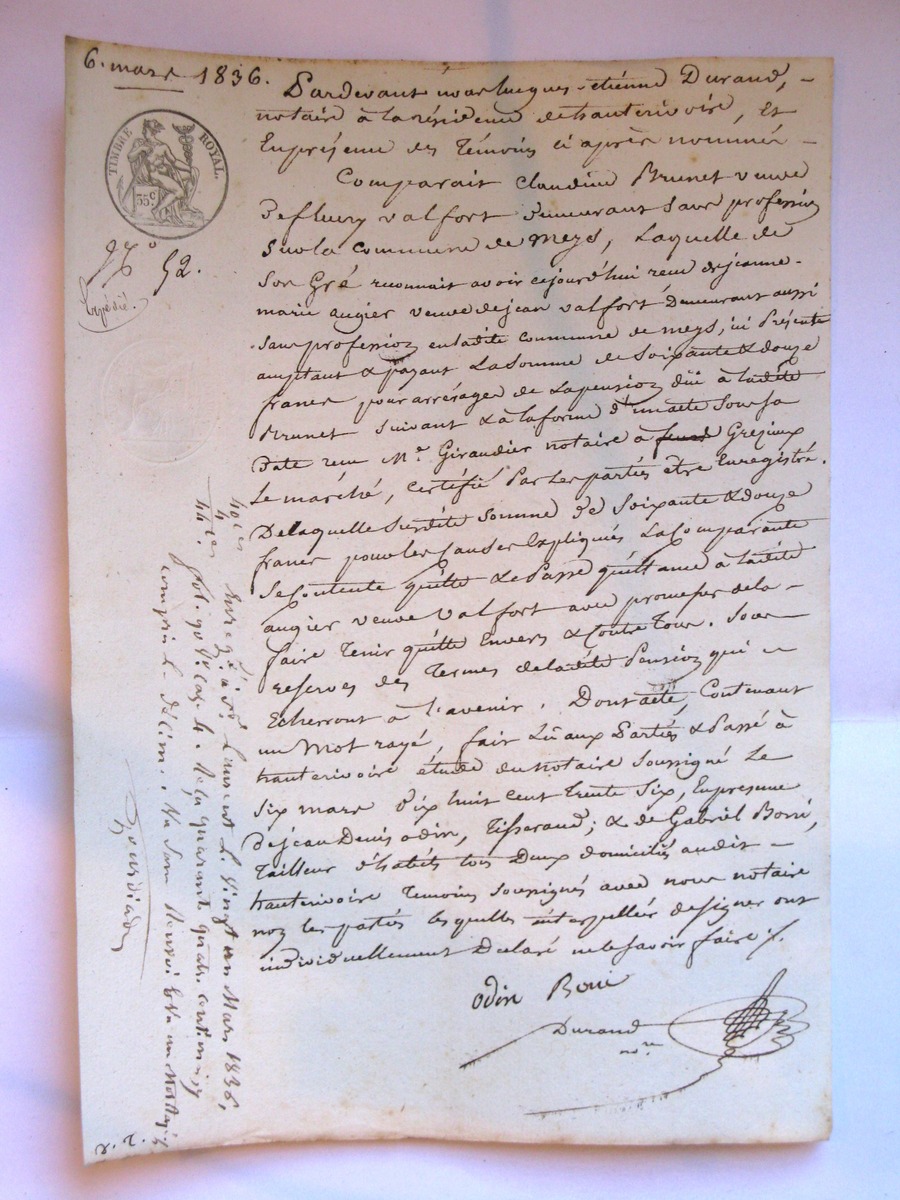 6. mars 1836.
Pardevant nous hugues-étienne Durand, -
notaire à la résidence de hauterivoire, et
En présence des Témoins ci après nommés -
Comparait Claudine Brunet veuve
de fleury valfort demeurant sans profession
sur la Commune de Meys, Laquelle de
Son Gré reconnait avoir cejourd'hui recu de jeanne-
marie augier veuve de jean valfort Demeurant aussi
sans profession en ladite Commune de meys, ici Présente
aceptant & payant La Somme de Soixante & douze
francs pour arrérages de La pension düe à ladite
Brunet suivant & à la forme d'un acte Sous sa
Date recu Me. Giraudier notaire à Grezieux
Le marché, certifié Par Les parties être Enregistré.
De laquelle Susdite Somme de Soixante & douze
francs pour les Causes Expliquées La Comparante
Se Contente quitte & de Passe quittance à ladite
augier veuve valfort avec promesse de la -
faire Tenir quitte Envers & Contre Tous. Sous
reserves des Termes de ladite Pension qui -
Echerront à l'avenir. Dont acte, Contenant
un Mot rayé, fait Lû aux Parties & Passé à
hauterivoire étude du Notaire soussigné Le
Six mars Dix huit cent trente Six, En presence
de jean Denis odin, Tisserand; & de Gabriel Boni,
Tailleur d'habits tous Deux domiciliés audit -
hauterivoire Temoins soussignés avec nous notaire
non les parties lesquelles interpellées de signer ont
individuellement Déclaré ne le savoir faire /.
odin Boni
Durand
nore
TIMBRE ROYAL.
35c
No 52.
Expédié.
Enregé à St Laurent le Vingt un Mars 1836,
fol. 90 Vo Cas 4. Reçu quarante quatre centimes
compris le décime.
r. r.